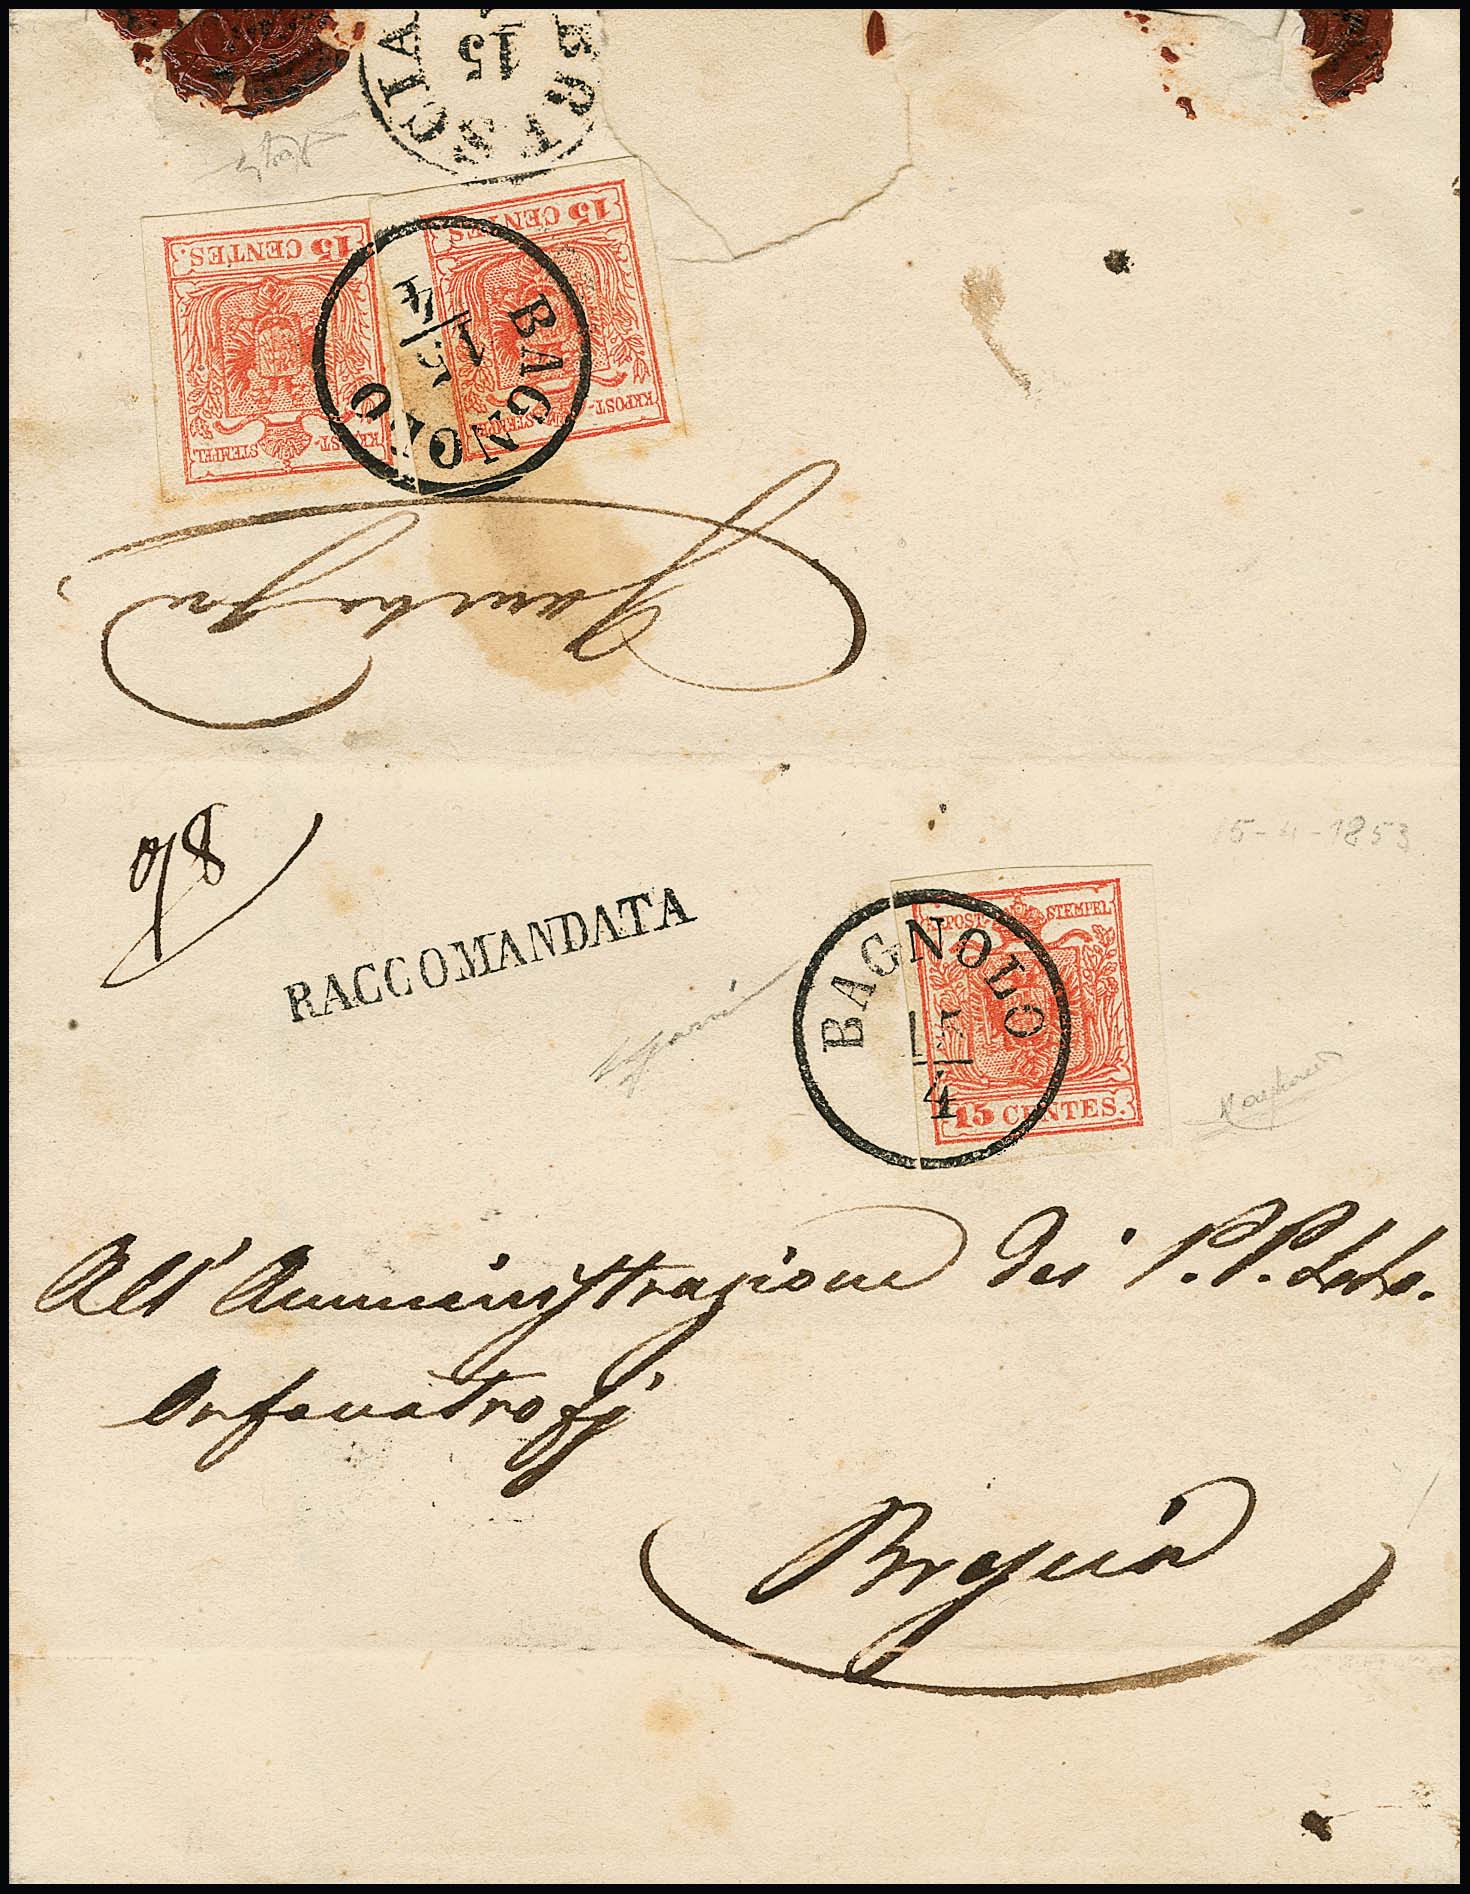 BRESCIA
15
15 CENTES.
KKPOST-STEMPEL
15 CENTES.
KKPOST-STEMPEL
BAGNOLO
15/4
98
15-4-1853
RACCOMANDATA
KKPOST-STEMPEL
15 CENTES.
BAGNOLO
15/4
All'Amministrazione dei P.P.
Orfanatrofj
Brescia